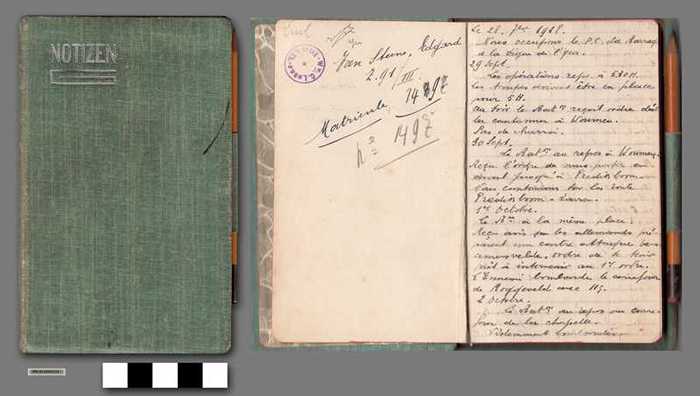 NOTIZEN
Van Steene, Edgard
2.91/III.
Matricule 1497
n° 1497
Le 28. 7bre 1918.
Nous occupons le P.C. du Barrag
à la digue de l'Yser.
29 Sept.
Les opérations repos à 5h30 H.
Les troupes doivent être en place
pour 5H.
Au soir le Batn reçoit ordre d'all
en cantonner à Woumen.
Pas de
30 Sept.
Le Batn au repos à Woumen.
Reçu l'ordre de nous porter en
avant jusqu'à Predikboom
Nous cantonnons sur la route
Predikboom - Zarren.
1er Octobre.
Le Bn à la même place.
Reçu avis que les allemands pré
parent une contre attaque vers
ordre de se tenir
prêt à intervenir au 1er ordre.
L'Ennemi bombarde le carrefour
de Roggeveld avec
2 Octobre.
Le Batn au repos au carre-
four de la chapelle.
Violemment bombardés